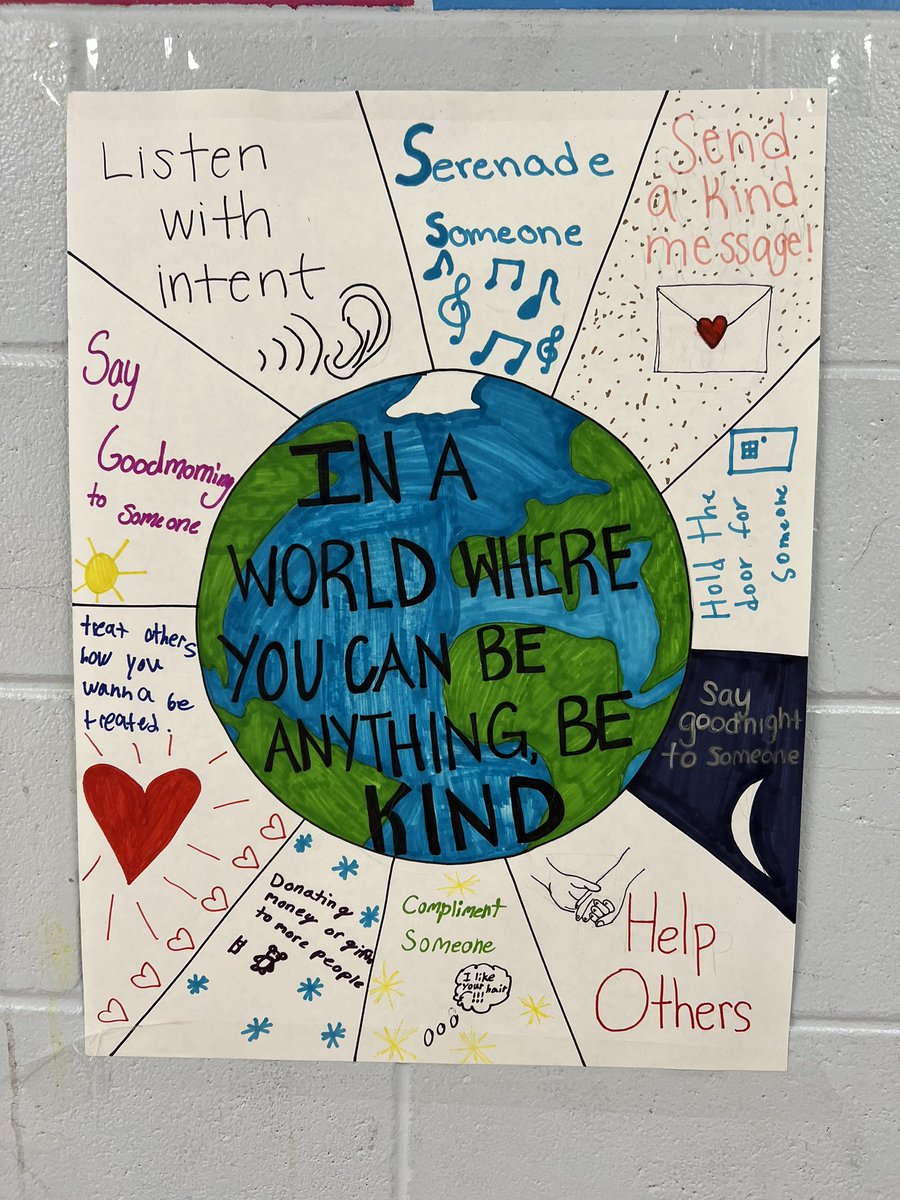 Listen
with
intent
Serenade
Someone
Send
a kind
message!
Say
Goodmorning
to someone
IN A
WORLD WHERE
YOU CAN BE
ANYTHING, BE
KIND
Hold the
door for
Someone
treat others
how you
wanna be
treated.
Say
goodnight
to someone
Donating
money or gifts
to more people
Compliment
Someone
I like
your hair
!!!
Help
Others